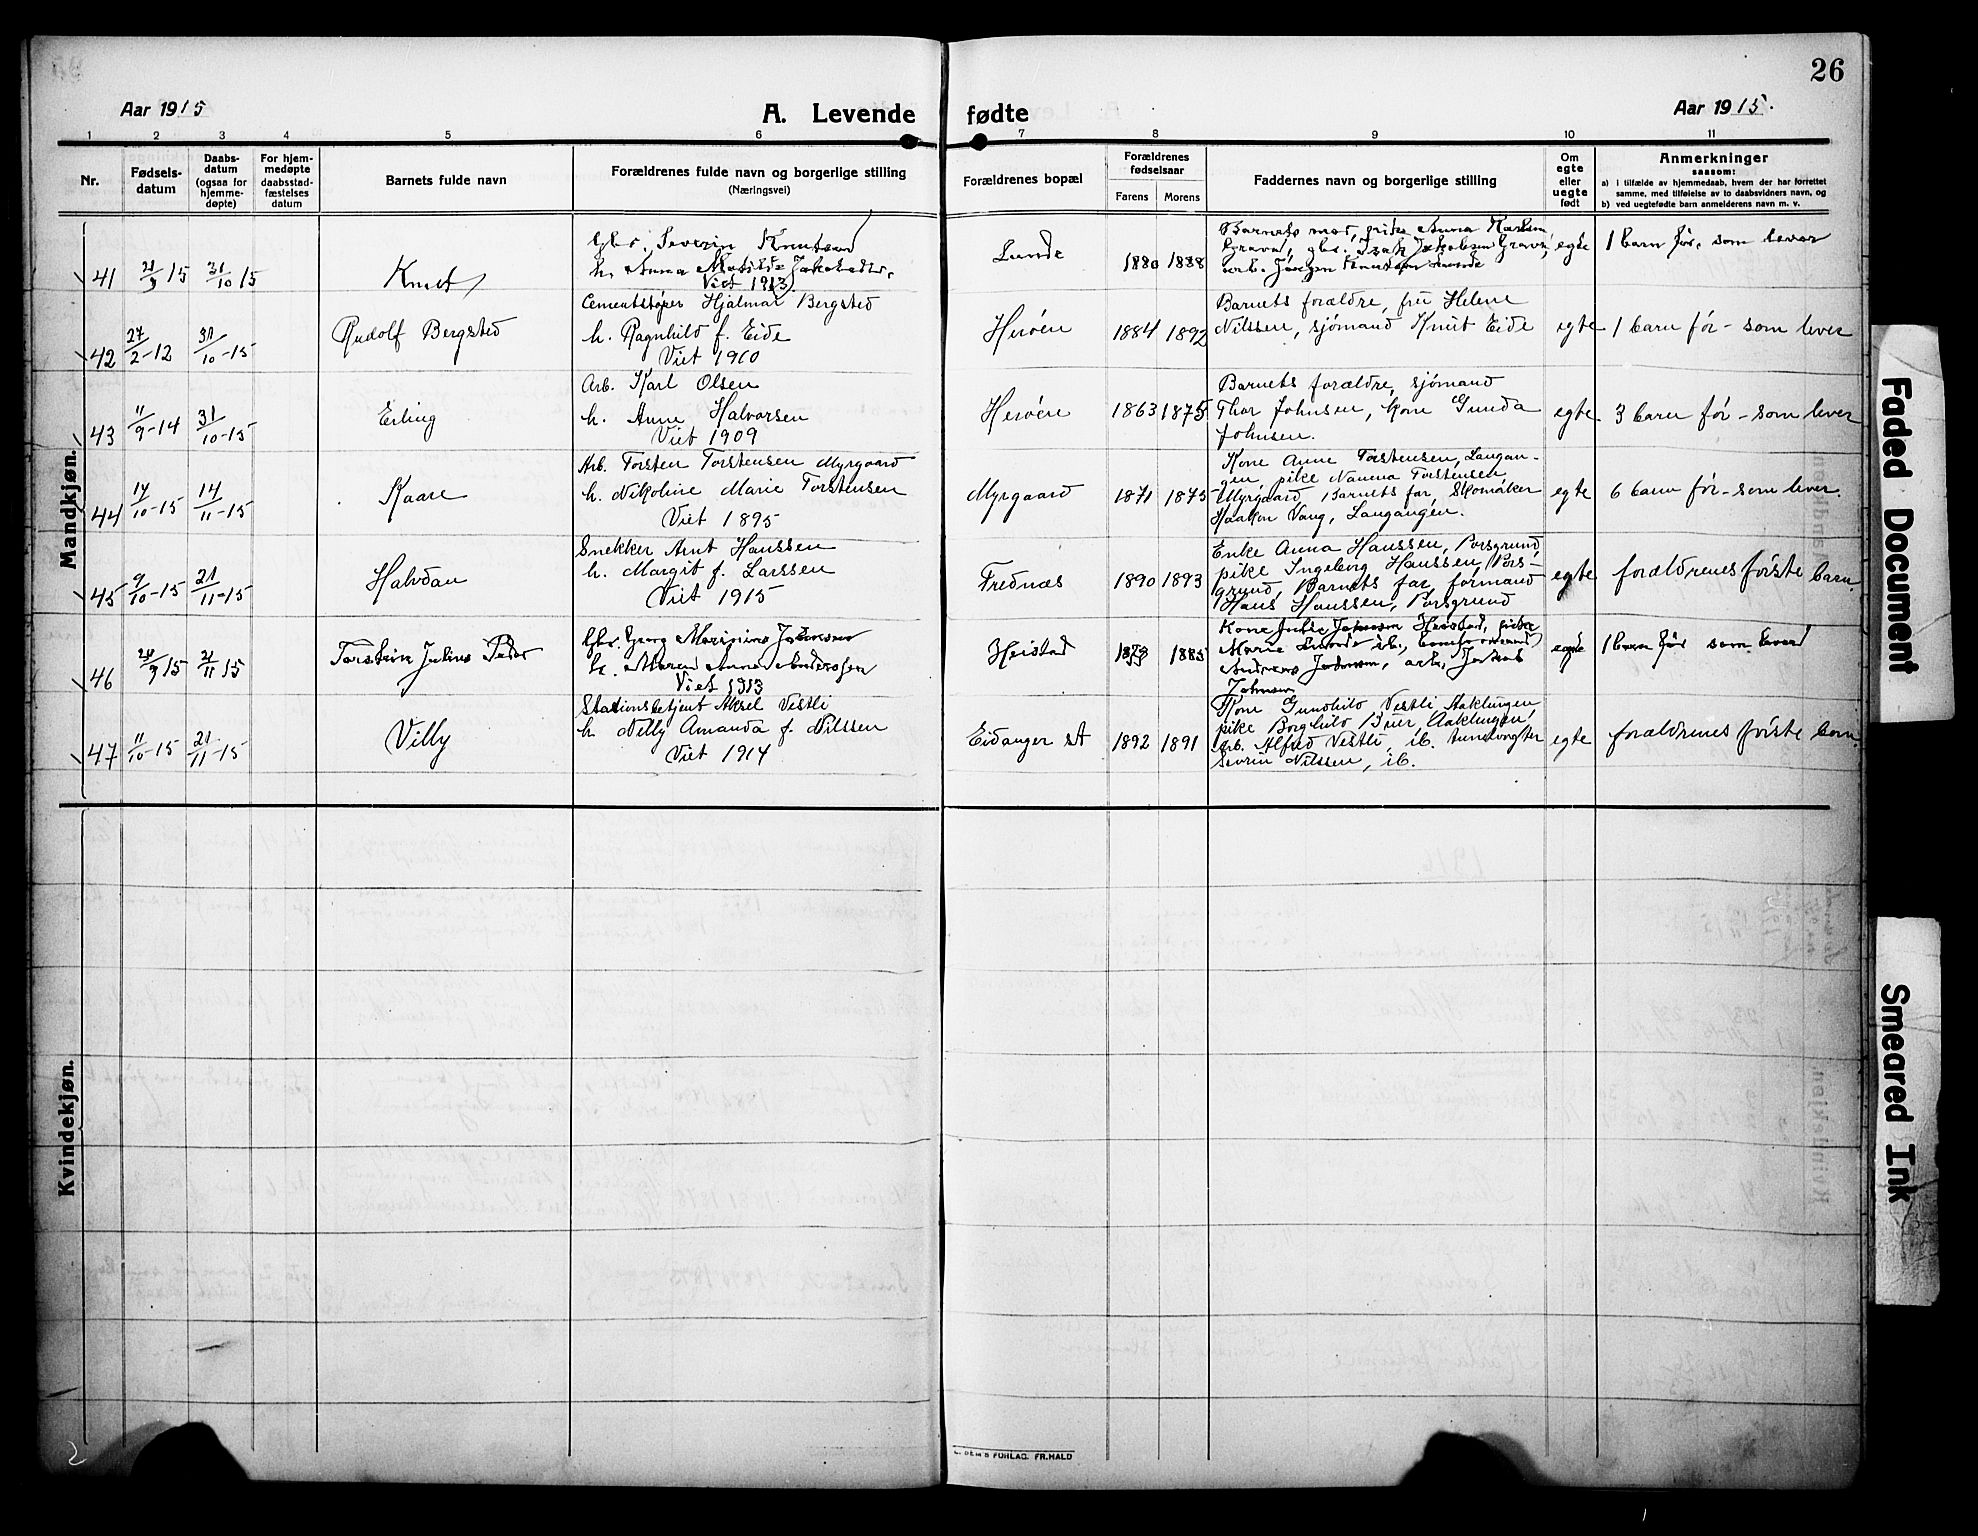 26
Aar 1915
A. Levende fødte
Aar 1915.
1 2 3 4 5 6 7 8 9 10 11
Nr.
Fødsels-
datum
Daabs-
datum
(ogsaa for
hjemme-
døpte)
For hjem-
medøpte
daabsstad-
fæstelses
datum
Barnets fulde navn
Forældrenes fulde navn og borgerlige stilling
(Næringsvei)
Forældrenes bopæl
Forældrenes
fødselsaar
Farens Morens
Faddernes navn og borgerlige stilling
Om
egte
eller
uegte
født
Anmerkninger
saasom:
a) I tilfælde av hjemmedaab, hvem der har forrettet
samme, med tilføielse av to daabsvidners navn, og
b) ved uegtefødte barn anmelderens navn m. v.
Mandkjøn.
41
21/9 15
31/10 15
Knut
Gbr. Severin Knutsen
h. Anna Matilde Jakobsdtr.
Viet 1913
Lunde
1880 1888
Barnets mor, pike Anna Karlsen
Grava, gbr. Isak Jakobsen Grava,
ark. Jørgen Knutsen Lunde
egte
1 barn før, som lever
42
27/2-12
31/10-15
Rudolf Bergsted
Cementstøper Hjalmar Bergsted
h. Ragnhild f. Eide
Viet 1910
Herøen
1884 1892
Barnets forældre, fru Helene
Nilssen, sjömand Knut Eide
egte
1 barn før - som lever
43
11/9-14
31/10-15
Erling
Arb. Karl Olsen
h. Anne Halvorsen
Viet 1909
Herøen
1863 1875
Barnets forældre, sjömand
Thor Johnsen, kone Gunda
Johnsen.
egte
3 barn før - som lever
44
14/10-15
14/11-15
Kaare
Arb. Torsten Torstensen Myrgaard
h. Nikoline Marie Torstensen
Viet 1895
Myrgaard
1871 1875
Kone Anne Torstensen, Langan-
gen, pike Nanna Torstensen
Myrgaard, Barnets far, Skomaker
Haakon Vang, Langangen.
egte
6 barn før - som lever.
45
9/10-15
21/11-15
Halvdan
Snekker Arnt Hanssen
h. Margit f. Larssen
Viet 1915
Frednæs
1890 1893
Enke Anna Hanssen, Porsgrund,
pike Ingeborg Hanssen, Pors-
grund, Barnets far, formand
Hans Hanssen, Porsgrund
egte
forældrenes første barn.
46
20/9 15
21/11 15
Torstein Julius Peder
Gbr. Georg Marinius Johnsen
h. Maren Anne Andersen
Viet 1913
Heistad
1885
Kone Julie Johnsen Heistad, pike
Marie Lunde ib.,
Andreas Johnsen, arb. Jakob
Johnsen
egte
1 barn før som lever
47
11/10-15
21/11-15
Villy
Stationsbetjent Aksel Vestli
h. Nelly Amanda f. Nilssen
Viet 1914
Eidanger st
1892 1891
Kone Gunhild Vestli, Aaklungen,
pike Borghild Buer, Aaklungen,
Arb. Alfred Vestli, ib. tunelvogter
Severin Nilssen, ib.
egte
forældrenes første barn.
Kvindekjøn.
FORLAG. FR.HALD
Faded Document
Smeared Ink